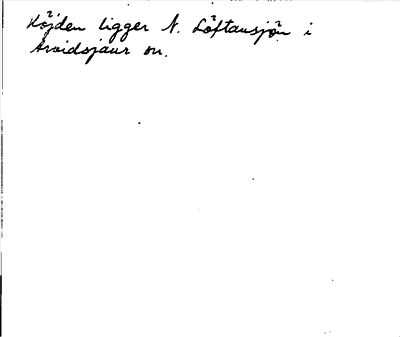 Höjden ligger N. Löftansjön i
Arvidsjaur sn.